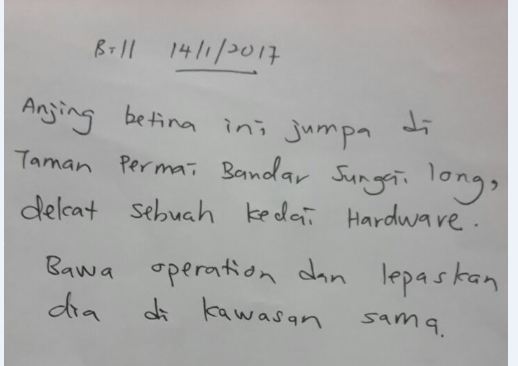 Bill 14/1/2017
Anjing betina ini jumpa di
Taman Permai Bandar Sungai long,
dekat sebuah kedai Hardware.
Bawa operation dan lepaskan
dia di kawasan sama.